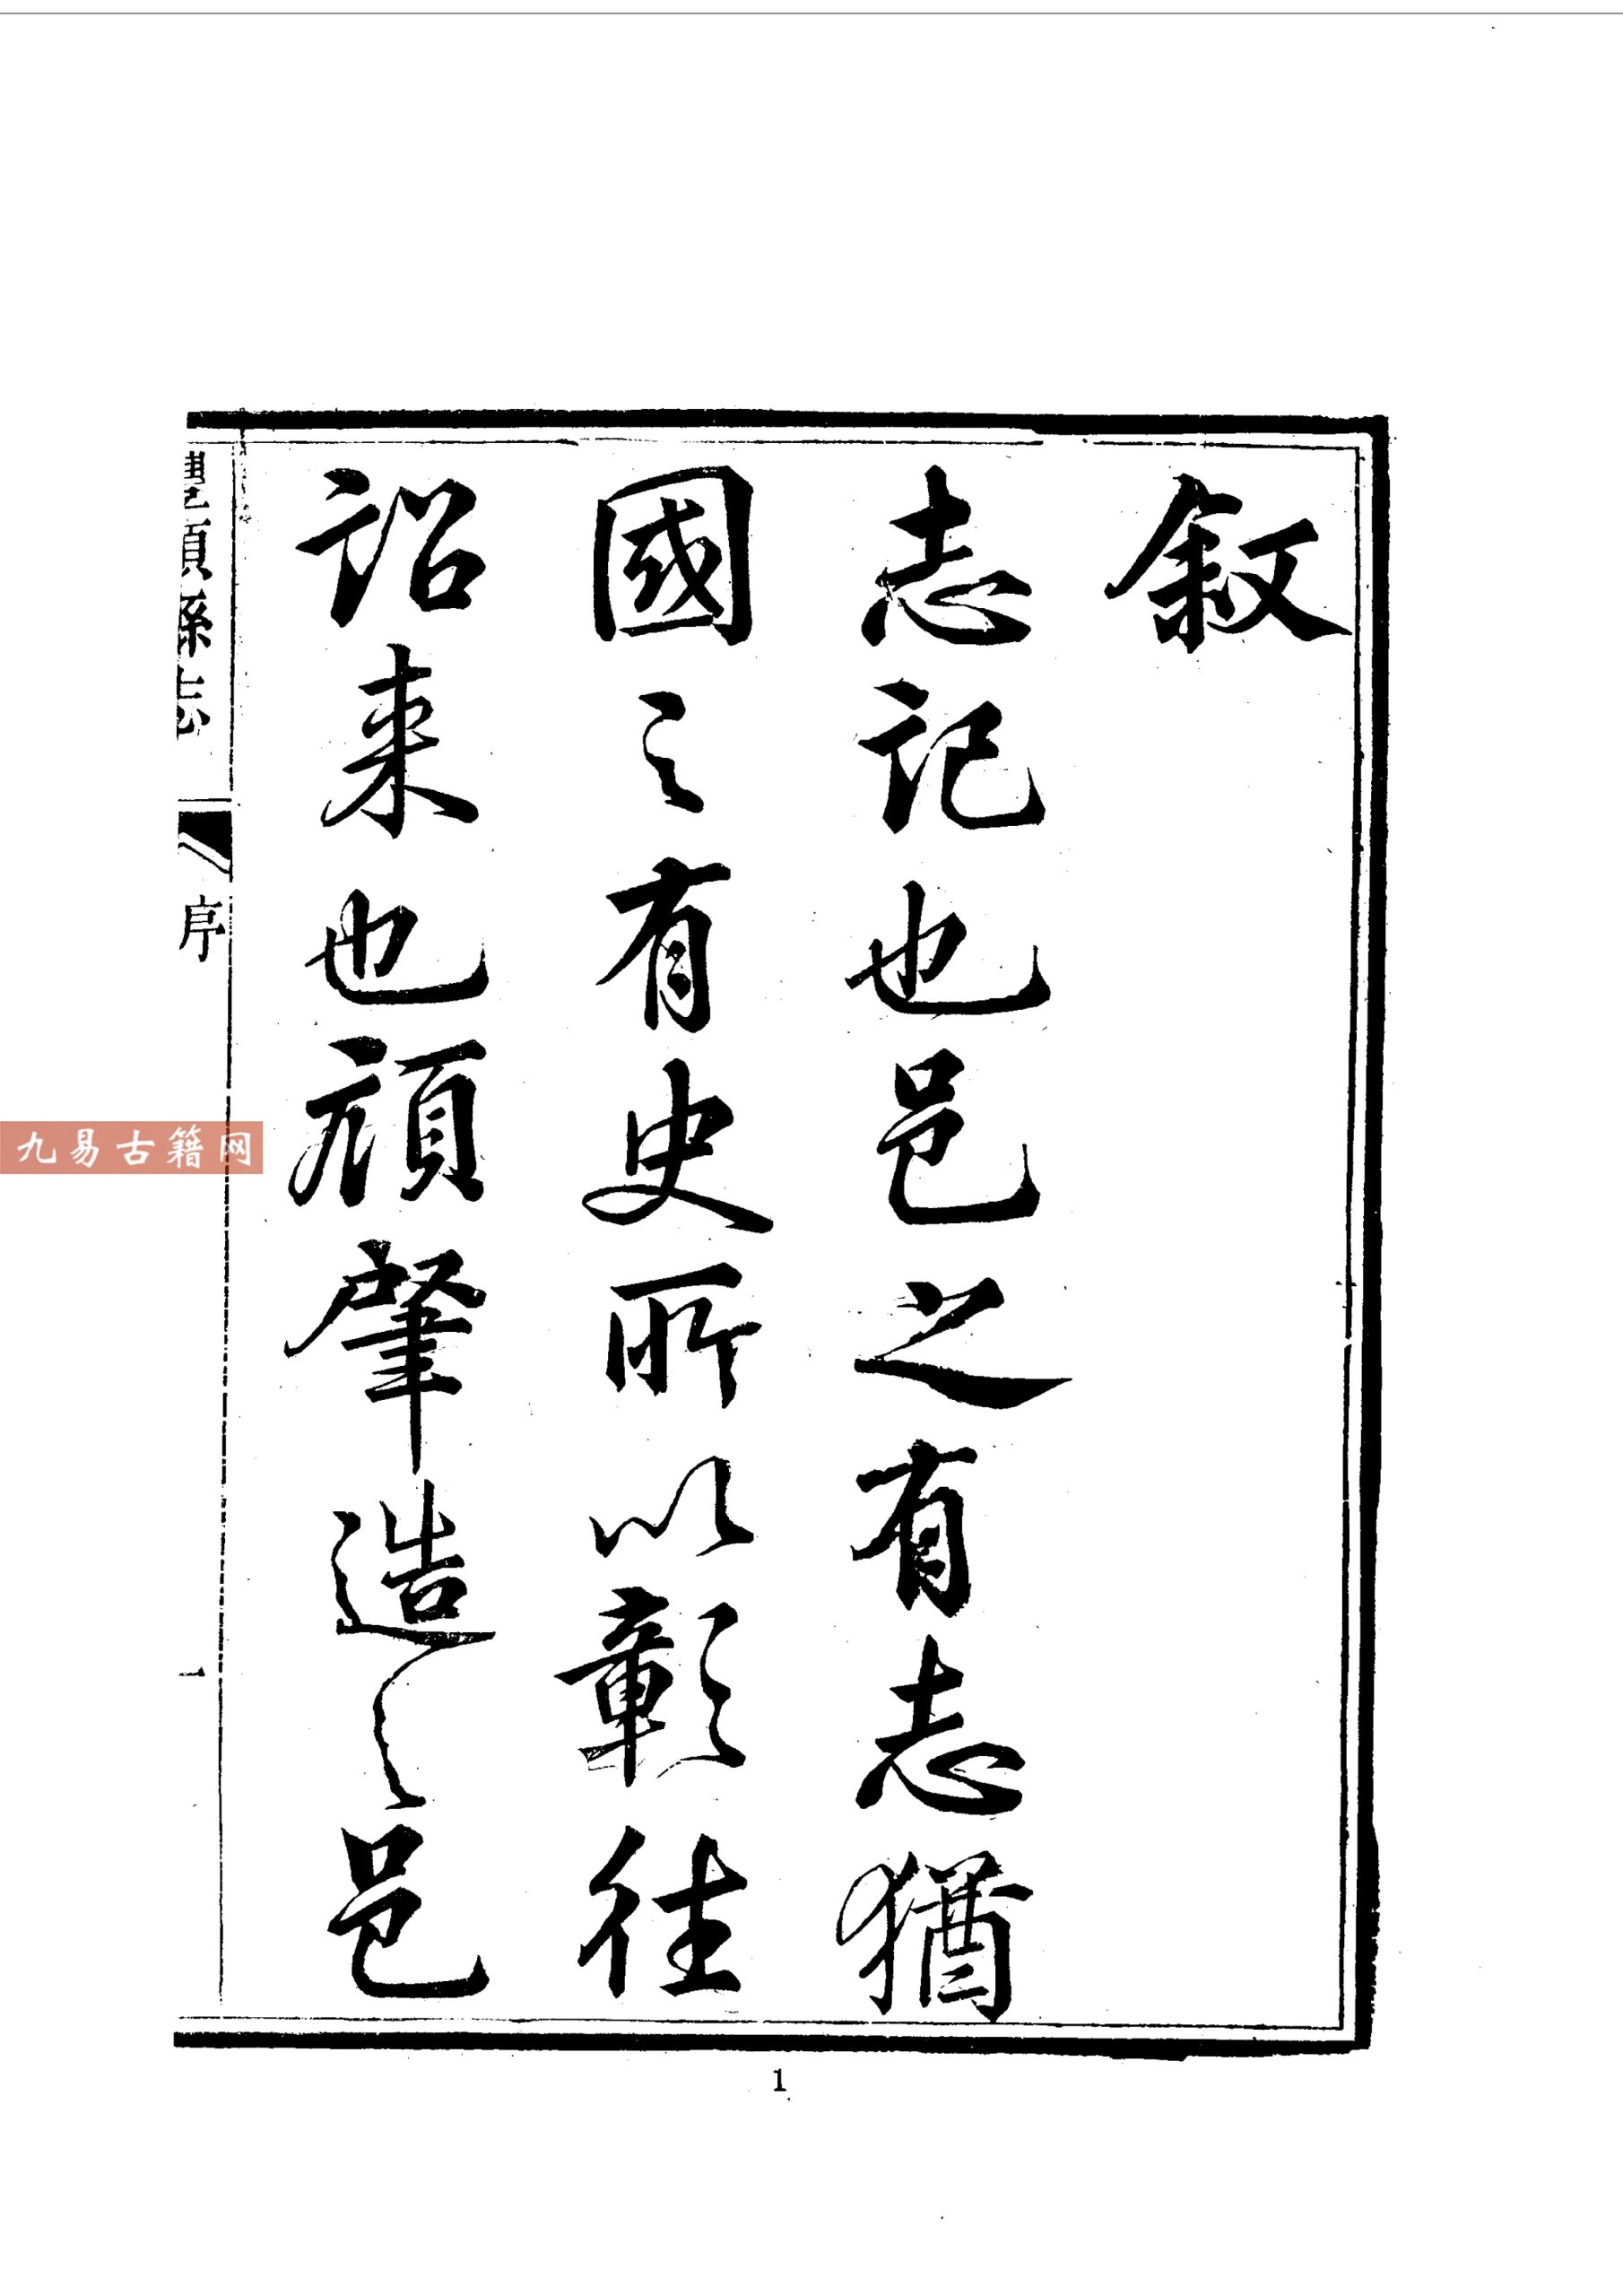 叙
志記也邑之有志猶
國之有史所以彰往
詔来也頋肈造之邑
豐順縣志
序
一
九易古籍网
1